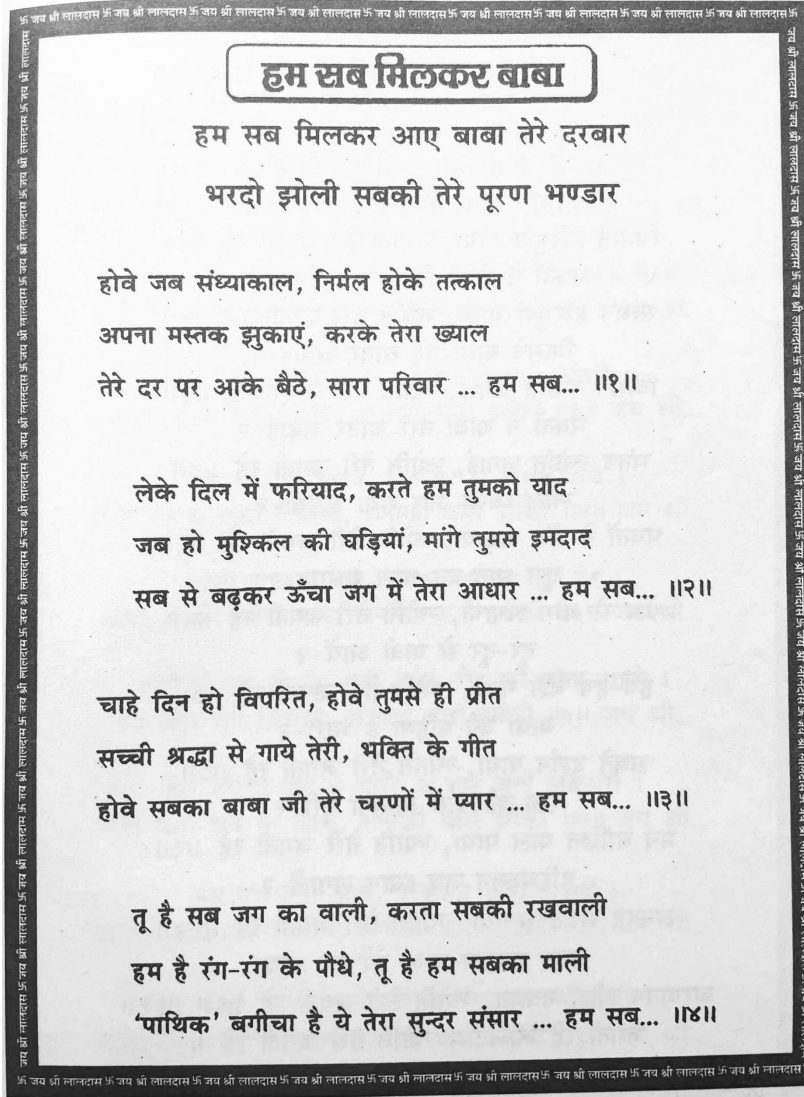 卐 जय श्री लालदास 卐 जय श्री लालदास 卐 जय श्री लालदास 卐 जय श्री लालदास 卐 जय श्री लालदास 卐 जय श्री लालदास 卐 जय श्री लालदास 卐 जय श्री लालदास 卐
हम सब मिलकर बाबा
हम सब मिलकर आए बाबा तेरे दरबार
भरदो झोली सबकी तेरे पूरण भण्डार
होवे जब संध्याकाल, निर्मल होके तत्काल
अपना मस्तक झुकाएं, करके तेरा ख्याल
तेरे दर पर आके बैठे, सारा परिवार ... हम सब... ॥१॥
लेके दिल में फरियाद, करते हम तुमको याद
जब हो मुश्किल की घड़ियां, मांगे तुमसे इमदाद
सब से बढ़कर ऊँचा जग में तेरा आधार ... हम सब... ॥२॥
चाहे दिन हो विपरित, होवे तुमसे ही प्रीत
सच्ची श्रद्धा से गाये तेरी, भक्ति के गीत
होवे सबका बाबा जी तेरे चरणों में प्यार ... हम सब... ॥३॥
तू है सब जग का वाली, करता सबकी रखवाली
हम है रंग-रंग के पौधे, तू है हम सबका माली
'पाथिक' बगीचा है ये तेरा सुन्दर संसार ... हम सब... ॥४॥
卐 जय श्री लालदास 卐 जय श्री लालदास 卐 जय श्री लालदास 卐 जय श्री लालदास 卐 जय श्री लालदास 卐 जय श्री लालदास 卐 जय श्री लालदास 卐 जय श्री लालदास